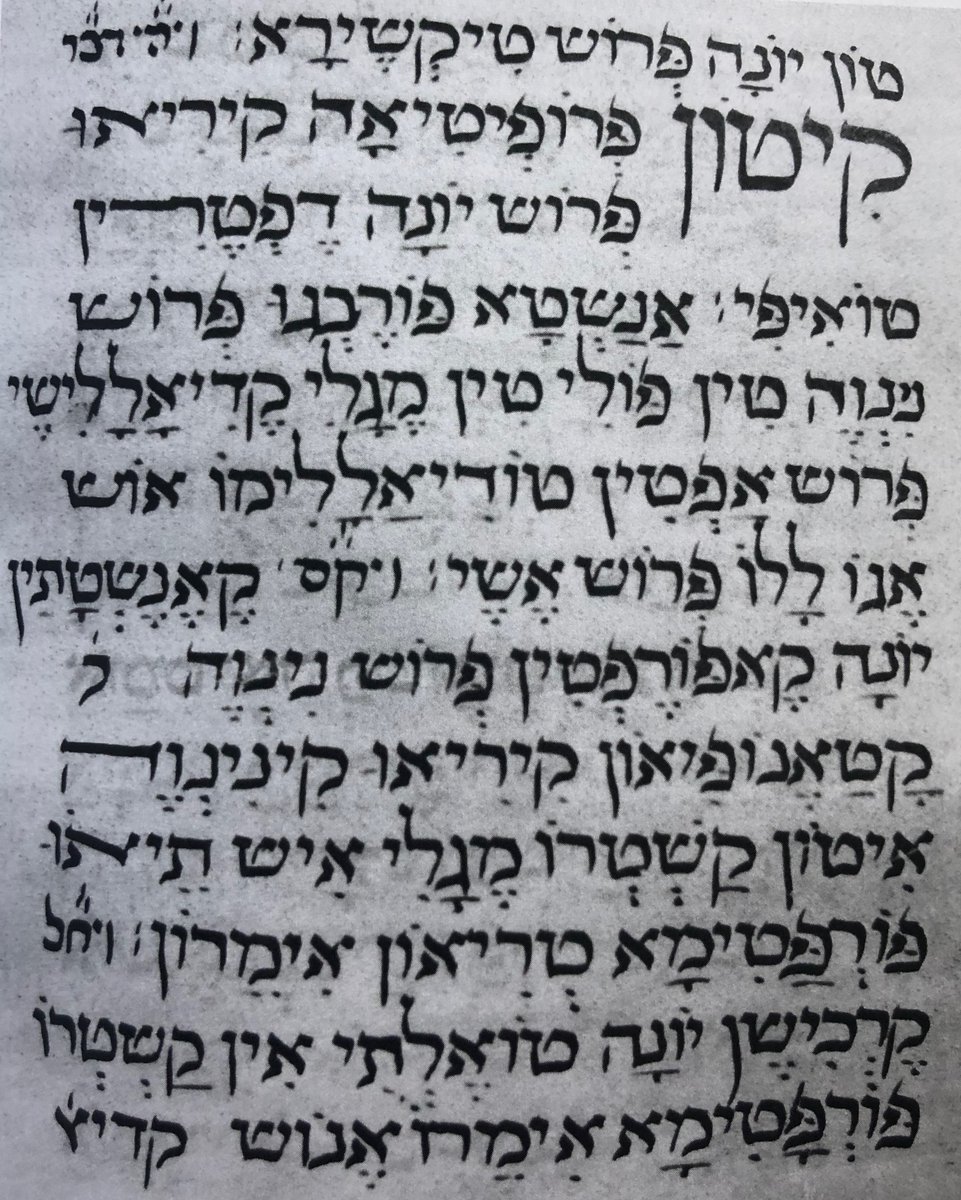 טוֹן יוֹנָה פְּרוֹשׁ טִיקְשֶׁירָא׃ ויהי דב׳
קִיטוֹן פְּרוֹפִיטִיאָה קִירִיאוּ
פְּרוֹשׁ יוֹנָה דֶפְטֶרִין
טוֹאִיפִּי׃ אַנַשְׁטָא פּוֹרֶבְגוּ פְּרוֹשׁ
נִנְוֶה טִין פּוֹלִי טִין מֶגָלִי קֶדִיאָלָלִישֶׁי
פְּרוֹשׁ אַפְטִין טוֹדִיאַלָלִימוֹ אוֹשׁ
אֶגוֹ לָלוֹ פְּרוֹשׁ אֶשֶׁי׃ ויקם קֶאֶנֶשְׁטָתִין
יוֹנָה קֶאפּוֹרֶפְטִין פְּרוֹשׁ נִינְוֶה ק
קַטַאֶנוֹפִּיאוֹן קִירִיאוּ קִינִינְוֶה
אִיטוֹן קַשְׁטְרוֹ מֶגָלִי אִישׁ תֵיאוּ
פּוֹרְפַּטִימָא טְרִיאוֹן אִימֵרוֹן׃ ויחל
קֶרְכִישֶׁן יוֹנָה טוֹאֶלְתִי אִין קַשְׁטְרוֹ
פּוֹרְפָּטִימָא אִימֵרוֹ אֶנוֹשׁ קדיצ